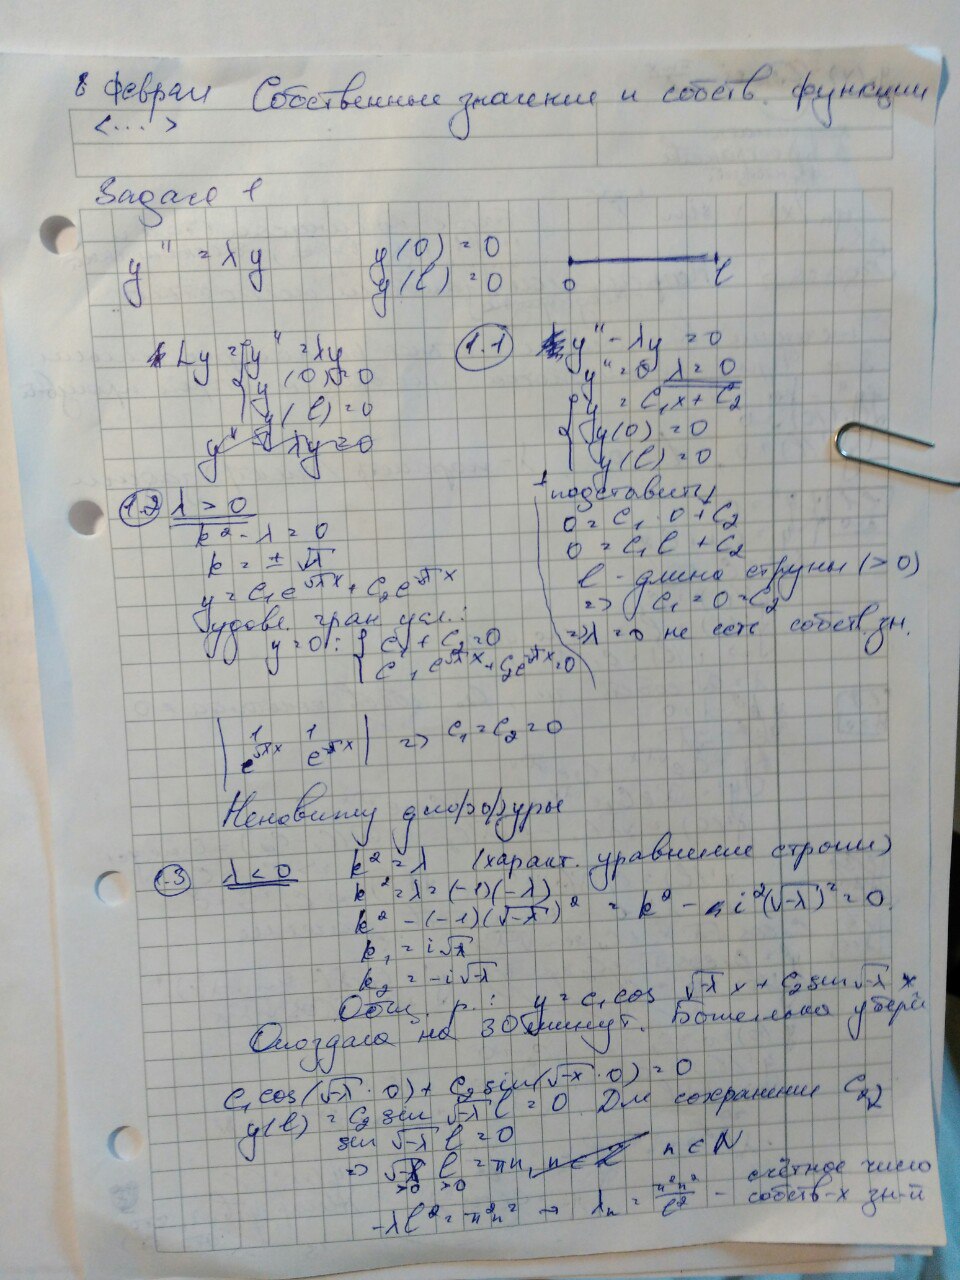 8 Феврал Собственные значение и собств. функции
<...>
Задача 1
y'' = λy y(0) = 0
y(l) = 0
0 l
Ly = { y'' = λy
y(0) = 0
y(l) = 0
y'' - λy = 0
1.1 y'' - λy = 0
y'' = 0 λ = 0
{ y = C₁x + C₂
y(0) = 0
y(l) = 0
подставить
0 = C₁ · 0 + C₂
0 = C₁l + C₂
l - длина струны (> 0)
=> C₁ = 0 = C₂
=> λ = 0 не есть собств. зн.
1.2 λ > 0
k² - λ = 0
k = ±√λ
y = C₁e^{√λx} + C₂e^{√λx}
удовл. гран. усл.:
y=0: { C₁ + C₂ = 0
C₁e^{√λx} + C₂e^{√λx} = 0
| 1 1 |
| e^{√λx} e^{√λx} | => C₁ = C₂ = 0
Ненавижу диффуры
1.3 λ < 0 k² = λ (характ. уравнение строим)
k² = λ = (-1)(-λ)
k² - (-1)(√-λ)² = k² - i²(√-λ)² = 0
k₁ = i√-λ
k₂ = -i√-λ
Общ. р.: y = C₁cos √-λ x + C₂ sin √-λ x
Опоздала на 30 минут.
C₁cos(√-λ · 0) + C₂ sin(√-λ · 0) = 0
y(l) = C₂ sin √-λ l = 0 Для сохранение C₂
sin √-λ l = 0
=> √-λ l = πn, n ∈ Z n ∈ N
>0 >0
-λl² = π²n² → λₙ = π²n²/l² - счётное число
собств-х зн-й